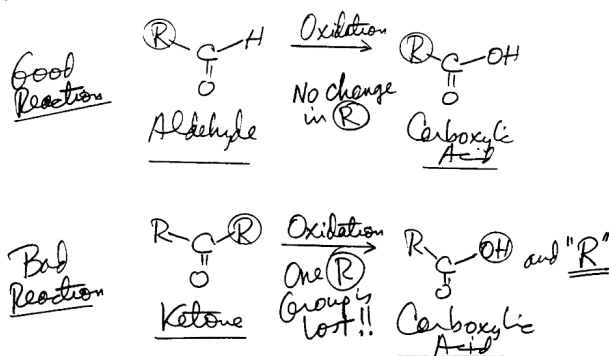 Good
Reaction
R C H
O
Aldehyde
Oxidation
No change
in R
R C OH
O
Carboxylic
Acid
Bad
Reaction
R C R
O
Ketone
Oxidation
One R
Group is
lost!!
R C OH and "R"
O
Carboxylic
Acid